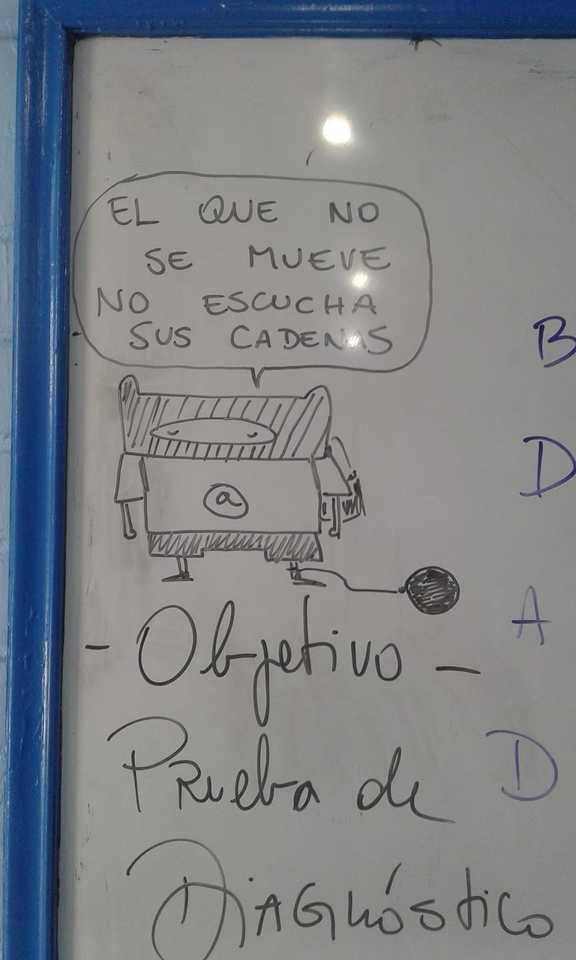 EL QUE NO
SE MUEVE
NO ESCUCHA
SUS CADENAS
@
- Objetivo -
Prueba de
DiAGnóstico
B
D
A
D